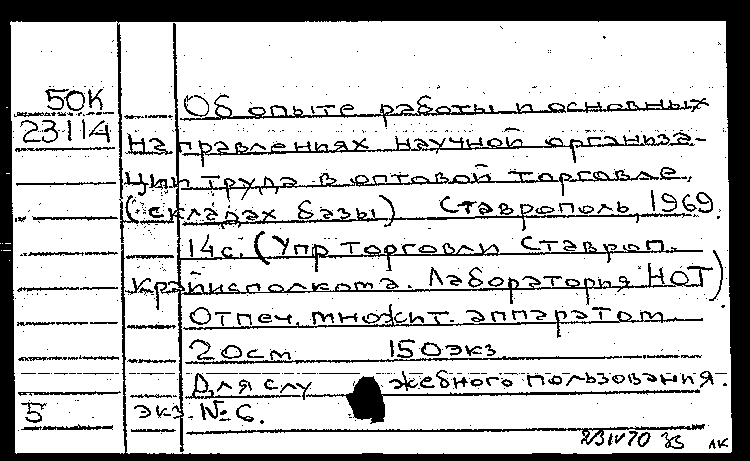 50К
23114
Об опыте работы и основных
направлениях научной организа-
ции труда в оптовой торговле,
(складах базы) Ставрополь, 1969.
14с. (Упр торговли Ставроп.
крайисполкома. Лаборатория НОТ)
Отпеч. множит. аппаратом
20см 150экз.
Для служебного пользования.
5 экз. № 6.